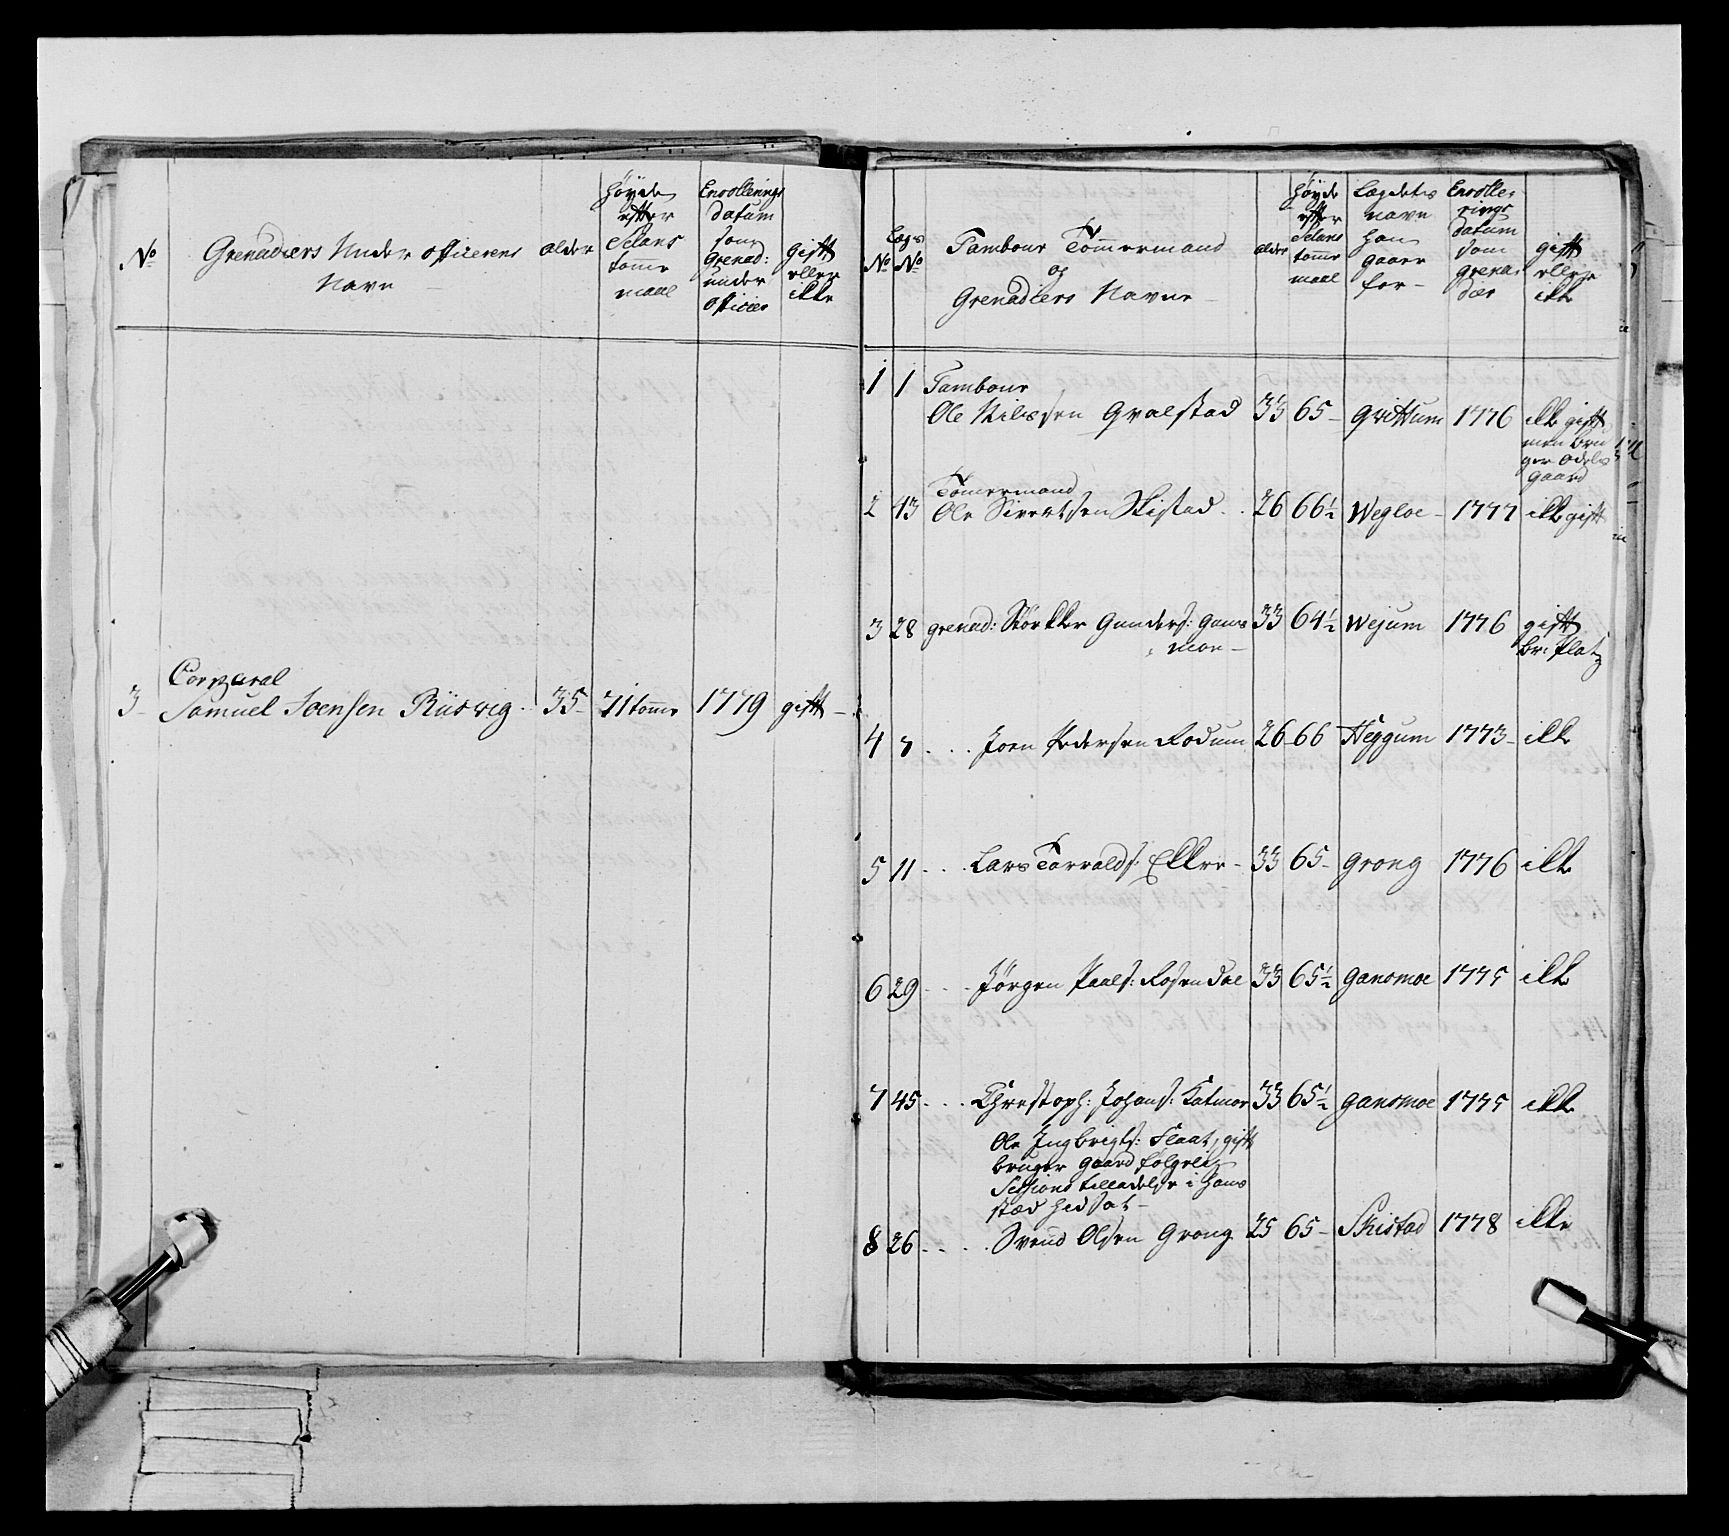 No
Grenadiers Under officerens
Navn
alder
høyde
efter
Selans
tomme
maal
Enrollerings
datum
som
Grenad:
under
officier
gift
eller
ikke
3
Corporal
Samuel Joensen Riisvig
35
71 tomme
1779
gift
No
Lægs
No
Tambour Tømmermand
og
Grenadiers Navne
alder
høyde
efter
Selans
tomme
maal
Lægdets
navn
han
gaaer
for
Enrolle-
rings
datum
som
grena-
dier
gift
eller
ikke
1 1 Tambour
Ole Nilssen Qvalstad 33 65 1776 ikke gift
men bru
ger Odels
gaard
Tømermand
2 43 Ole Sivertsen Skistad 26 66½ Wegloe 1777 ikke gift
3 28 grenad: Gunders: Gans 33 64½ Wejum 1776 gift
moe br: Platz
4 7 Joen Pedersen Rodum 26 66 Heggum 1773 ikke
5 11 Lars Torvalds: Ekker 33 65 Grong 1776 ikke
6 29 Jørgen Paals: Rosendal 33 65½ Gansmoe 1775 ikke
7 45 Christoph: Johans: Katmoe 33 65½ Gansmoe 1775 ikke
Ole Ingbrigts: Flaat, gift
bruger gaard følgelig
Sessions tilladelse i hans
stæd hidsat
8 26 Svend Olsen Grong 25 65 Skistad 1778 ikke